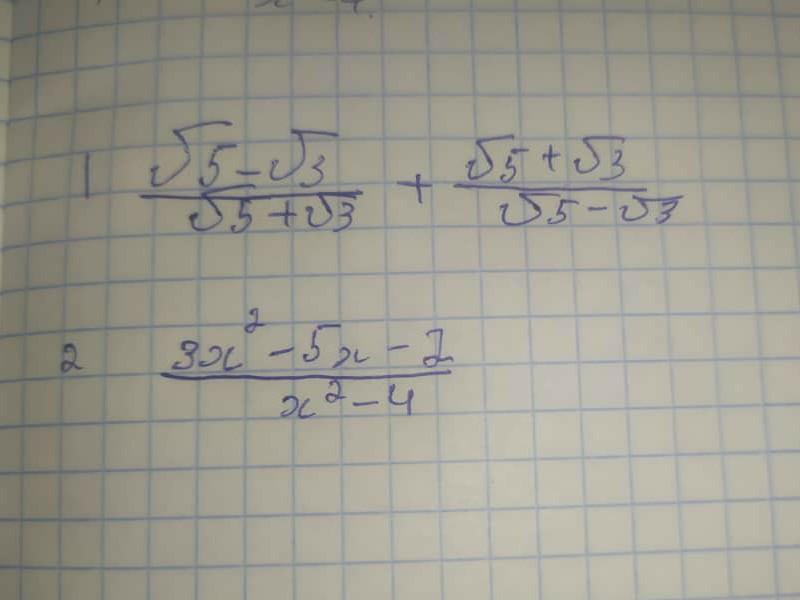 1 (√5-√3)/(√5+√3) + (√5+√3)/(√5-√3)
2 (3x²-5x-2)/(x²-4)